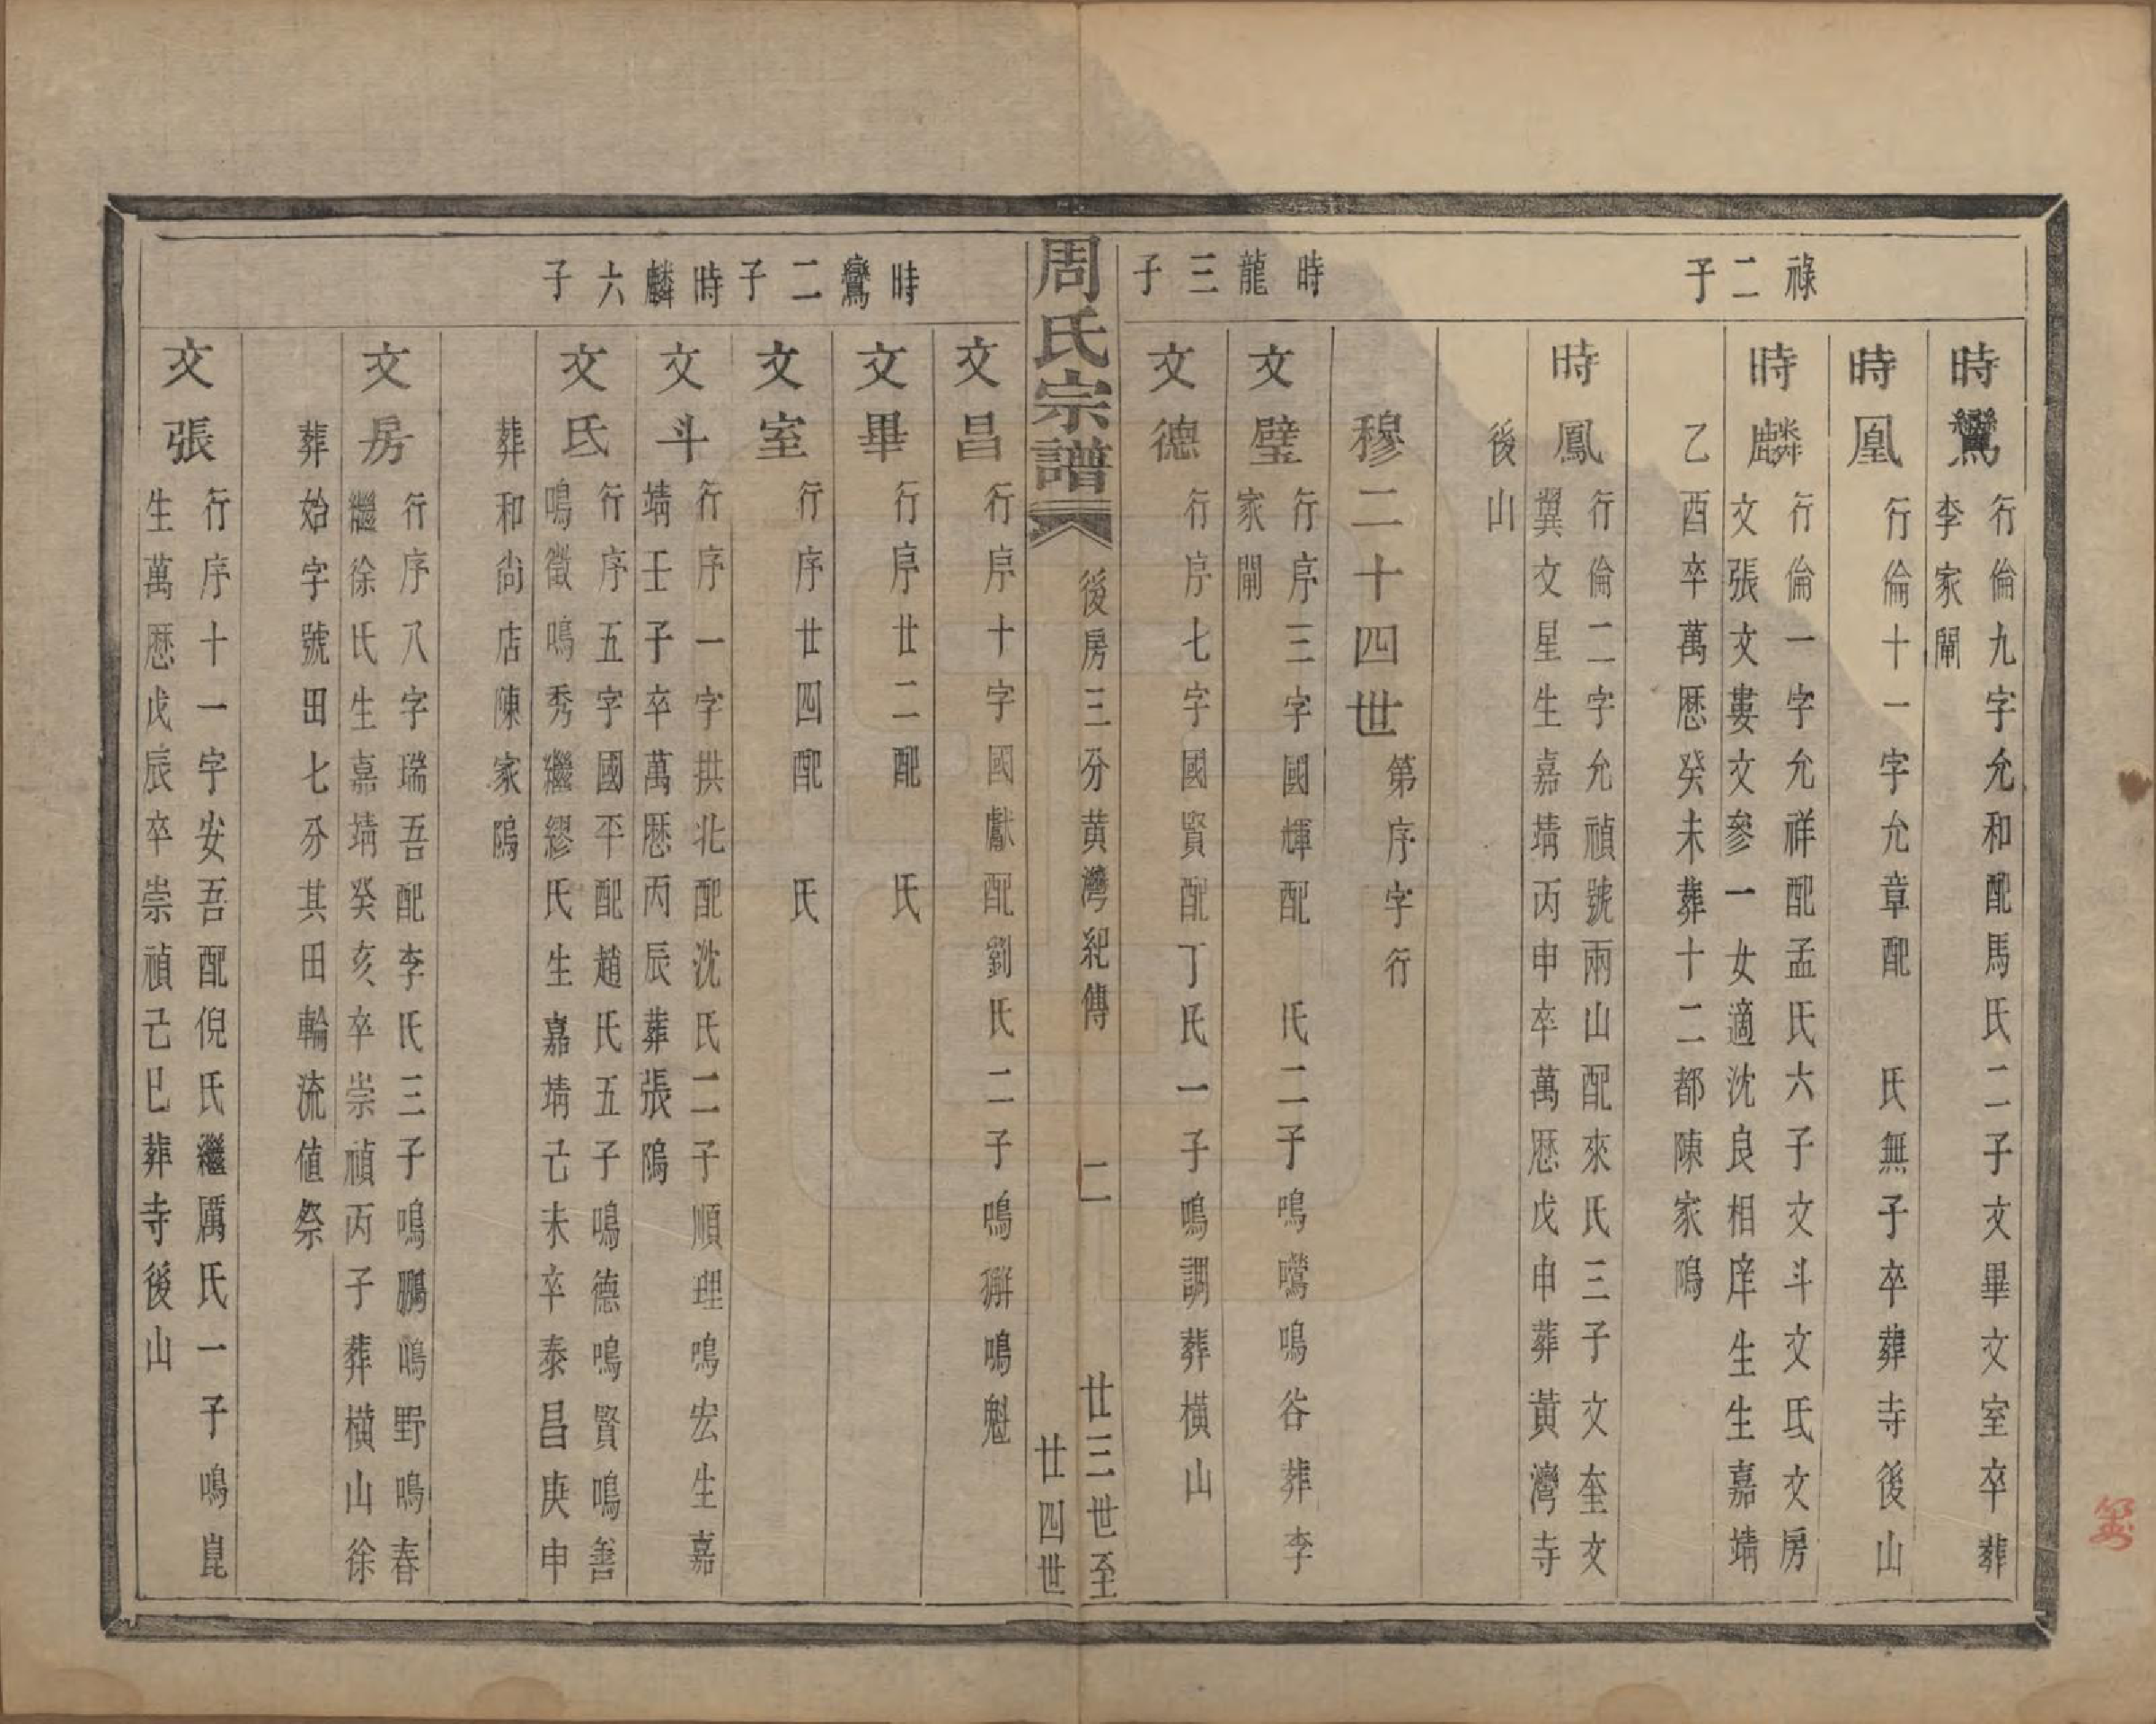 祿二子
時鸞
行倫九字允和配馬氏二子文畢文室卒葬
李家閘
時凰
行倫十一字允章配 氏無子卒葬寺後山
時麟
行倫一字允祥配孟氏六子文斗文氐文房
文張文婁文參一女適沈良相庠生生嘉靖
乙酉卒萬歷癸未葬十二都陳家隖
時鳳
行倫二字允禎號兩山配來氏三子文奎文
翼文星生嘉靖丙申卒萬歷戊申葬黃灣寺
後山
穆二十四世
第序字行
時龍三子
文璧
行序三字國輝配 氏二子鳴鶯鳴谷葬李
家閘
文德
行序七字國賢配丁氏一子鳴調葬橫山
周氏宗譜
後房三分黄灣紀傳
二
廿三世至
廿四世
時鸞二子時麟六子
文昌
行序十字國獻配劉氏二子鳴獬鳴魁
文畢
行序廿二配 氏
文室
行序廿四配 氏
文斗
行序一字拱北配沈氏二子順理鳴宏生嘉
靖壬子卒萬歷丙辰葬張隖
文氐
行序五字國平配趙氏五子鳴德鳴賢鳴善
鳴徵鳴秀繼繆氏生嘉靖己未卒泰昌庚申
葬和尙店陳家隖
文房
行序八字瑞吾配李氏三子鳴鵬鳴野鳴春
繼徐氏生嘉靖癸亥卒崇禎丙子葬橫山徐
葬始字號田七分其田輪流値祭
文張
行序十一字安吾配倪氏繼厲氏一子鳴崑
生萬歷戊辰卒崇禎己巳葬寺後山